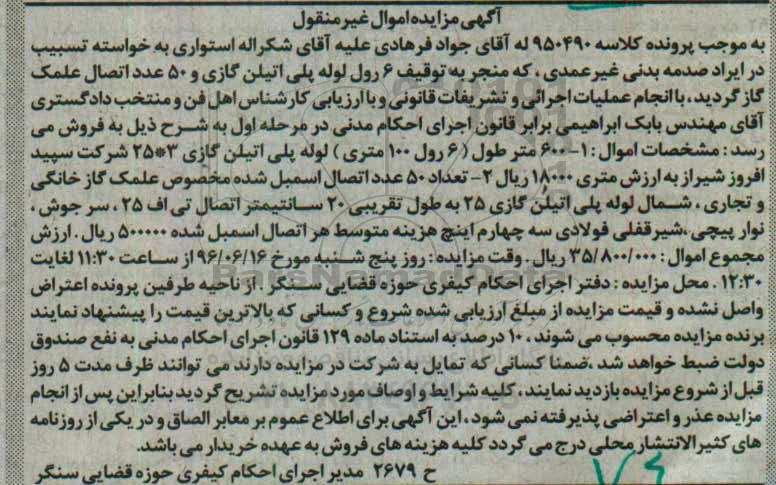 آگهی مزایده اموال غیر منقول
به موجب پرونده کلاسه ۹۵۰۴۹۰ له آقای جواد فرهادی علیه آقای شکراله استواری به خواسته تسبیب
در ایراد صدمه بدنی غیر عمدی ، که منجر به توقیف ۶ رول لوله پلی اتیلن گازی و ۵۰ عدد اتصال علمک
گاز گردید ، با انجام عملیات اجرائی و تشریفات قانونی و با ارزیابی کارشناس اهل فن و منتخب دادگستری
آقای مهندس بابک ابراهیمی برابر قانون اجرای احکام مدنی در مرحله اول به شرح ذیل به فروش می
رسد : مشخصات اموال : ۱- ۶۰۰ متر طول ( ۶ رول ۱۰۰ متری ) لوله پلی اتیلن گازی ۳*۲۵ شرکت سپید
افروز شیراز به ارزش متری ۱۸۰۰۰ ریال ۲- تعداد ۵۰ عدد اتصال اسمبل شده مخصوص علمک گاز خانگی
و تجاری ، شمال لوله پلی اتیلن گازی ۲۵ به طول تقریبی ۲۰ سانتیمتر اتصال تی اف ۲۵ ، سر جوش ،
نوار پیچی ،شیر قفلی فولادی سه چهارم اینچ هزینه متوسط هر اتصال اسمبل شده ۵۰۰۰۰۰ ریال . ارزش
مجموع اموال : ۳۵/۸۰۰/۰۰۰ ریال . وقت مزایده : روز پنج شنبه مورخ ۹۶/۰۶/۱۶ از ساعت ۱۱:۳۰ لغایت
۱۲:۳۰ . محل مزایده : دفتر اجرای احکام کیفری حوزه قضایی سنگر . از ناحیه طرفین پرونده اعتراض
واصل نشده و قیمت مزایده از مبلغ ارزیابی شده شروع و کسانی که بالاترین قیمت را پیشنهاد نمایند
برنده مزایده محسوب می شوند ، ۱۰ درصد به استناد ماده ۱۲۹ قانون اجرای احکام مدنی به نفع صندوق
دولت ضبط خواهد شد ،ضمنا کسانی که تمایل به شرکت در مزایده دارند می توانند ظرف مدت ۵ روز
قبل از شروع مزایده بازدید نمایند ، کلیه شرایط و اوصاف مورد مزایده تشریح گردید بنابراین پس از انجام
مزایده عذر و اعتراضی پذیرفته نمی شود ، این آگهی برای اطلاع عموم بر معابر الصاق و در یکی از روزنامه
های کثیر الانتشار محلی درج می گردد کلیه هزینه های فروش به عهده خریدار می باشد.
ح ۲۶۷۹ مدیر اجرای احکام کیفری حوزه قضایی سنگر
ParsNamadData